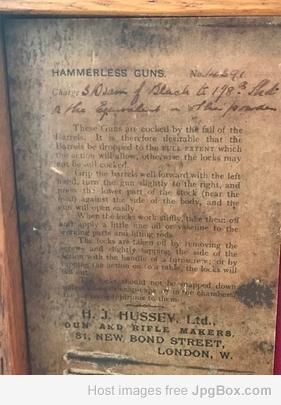 HAMMERLESS GUNS. No. 14291
Charge 3 Dram of Black & 1 98 Shot
or the Equivalent in other powders
These Guns are cocked by the fall of the
Barrels. It is therefore desirable that the
Barrels be dropped to the FULL EXTENT which
the action will allow, otherwise the locks may
not be full cocked.
Grip the barrels well forward with the left
hand, turn the gun slightly to the right, and
press the lower part of the stock (near the
head) against the side of the body, and the
gun will open easily.
When the locks work stiffly, take them off
and apply a little fine oil or vaseline to the
working parts and lifting rods.
The locks are taken off by removing the
screws and slightly tapping the side of the
action with the handle of a turnscrew; or by
tapping the action on to a table, the locks will
fall out.
The locks should not be snapped down
in the chambers,
to them.
H. J. HUSSEY, Ltd.,
GUN AND RIFLE MAKERS,
81, NEW BOND STREET,
LONDON, W.
Host images free JpgBox.com